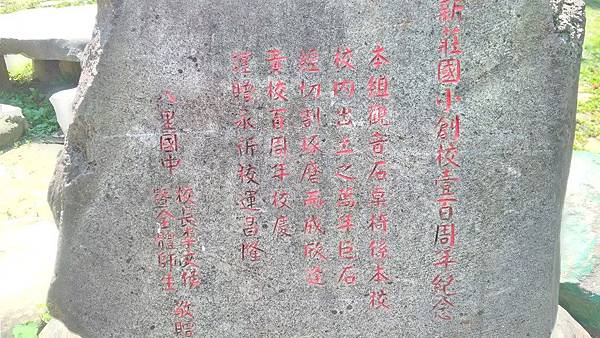 新莊國小創校壹百周年紀念
本組觀音石桌椅係本校
校內出土之萬年巨石
經切割琢磨而成欣逢
貴校百周年校慶
謹贈永祈校運昌隆
八里國中
校長李文
暨全體師生
敬贈